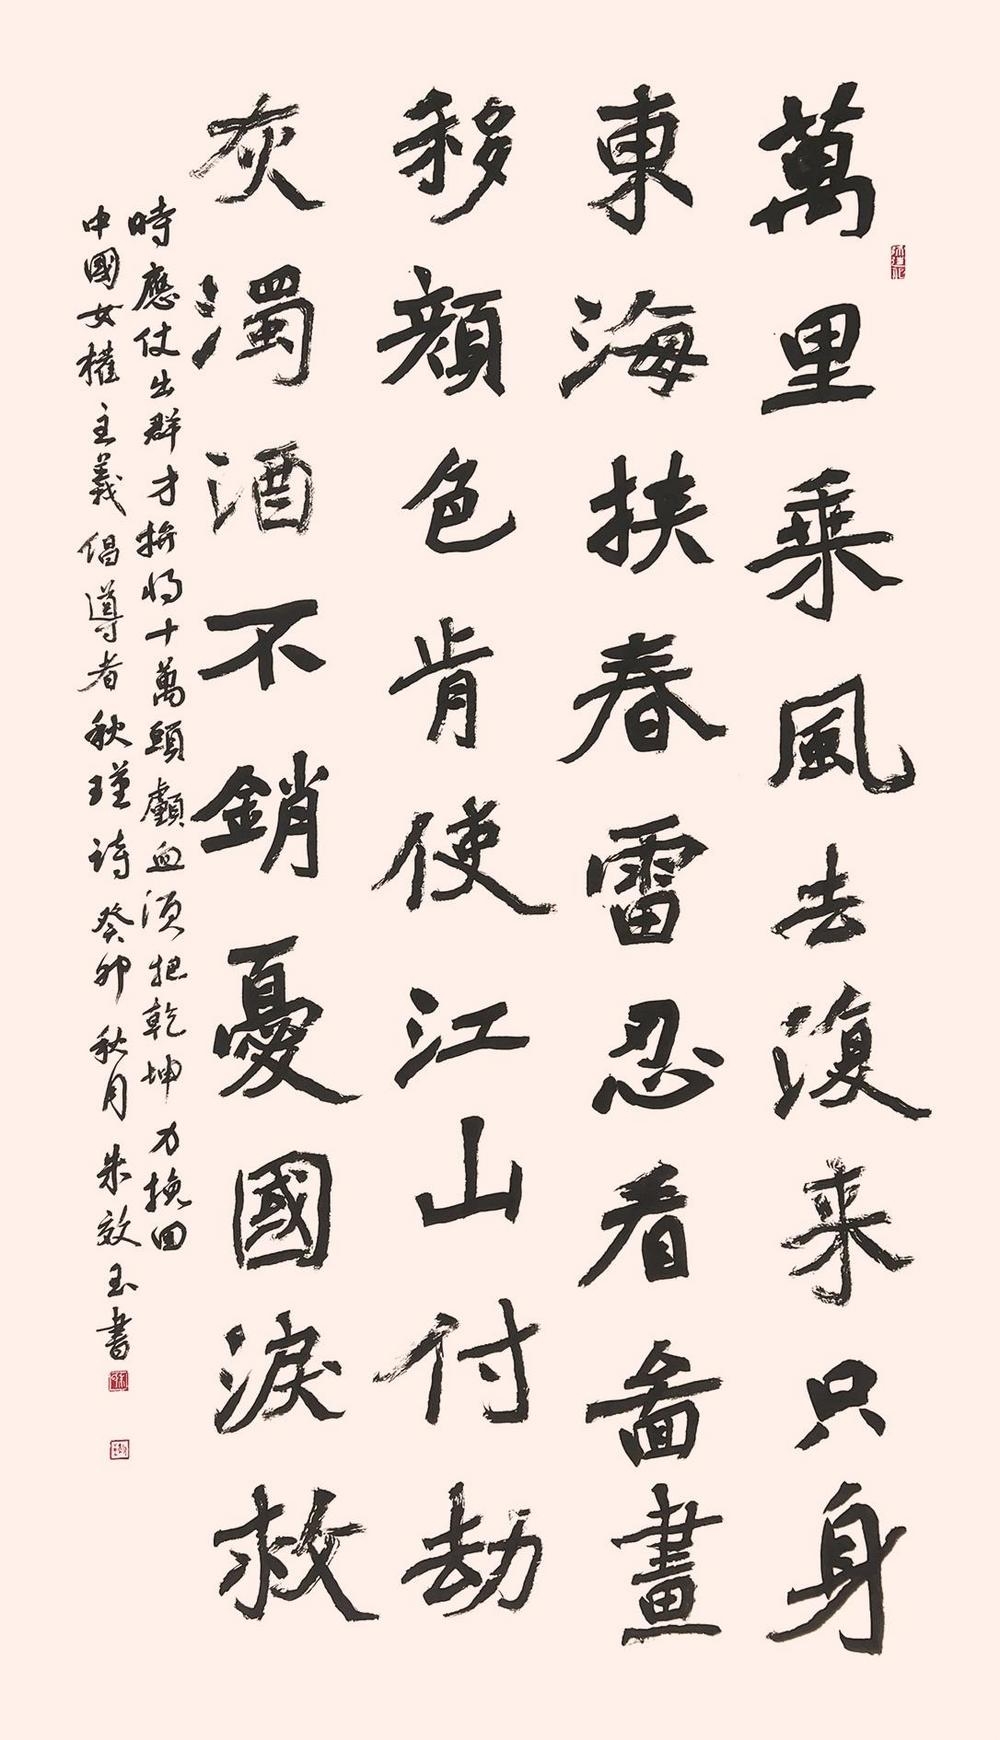 萬里乘風去復来只身
東海挟春雷忍看啚畫
移顔色肯使江山付劫
灰濁酒不銷憂國淚救
時應仗出群才拚将十萬頭顱血須把乾坤力挽回
中國女權主義倡導者秋瑾詩癸卯秋月朱效玉書